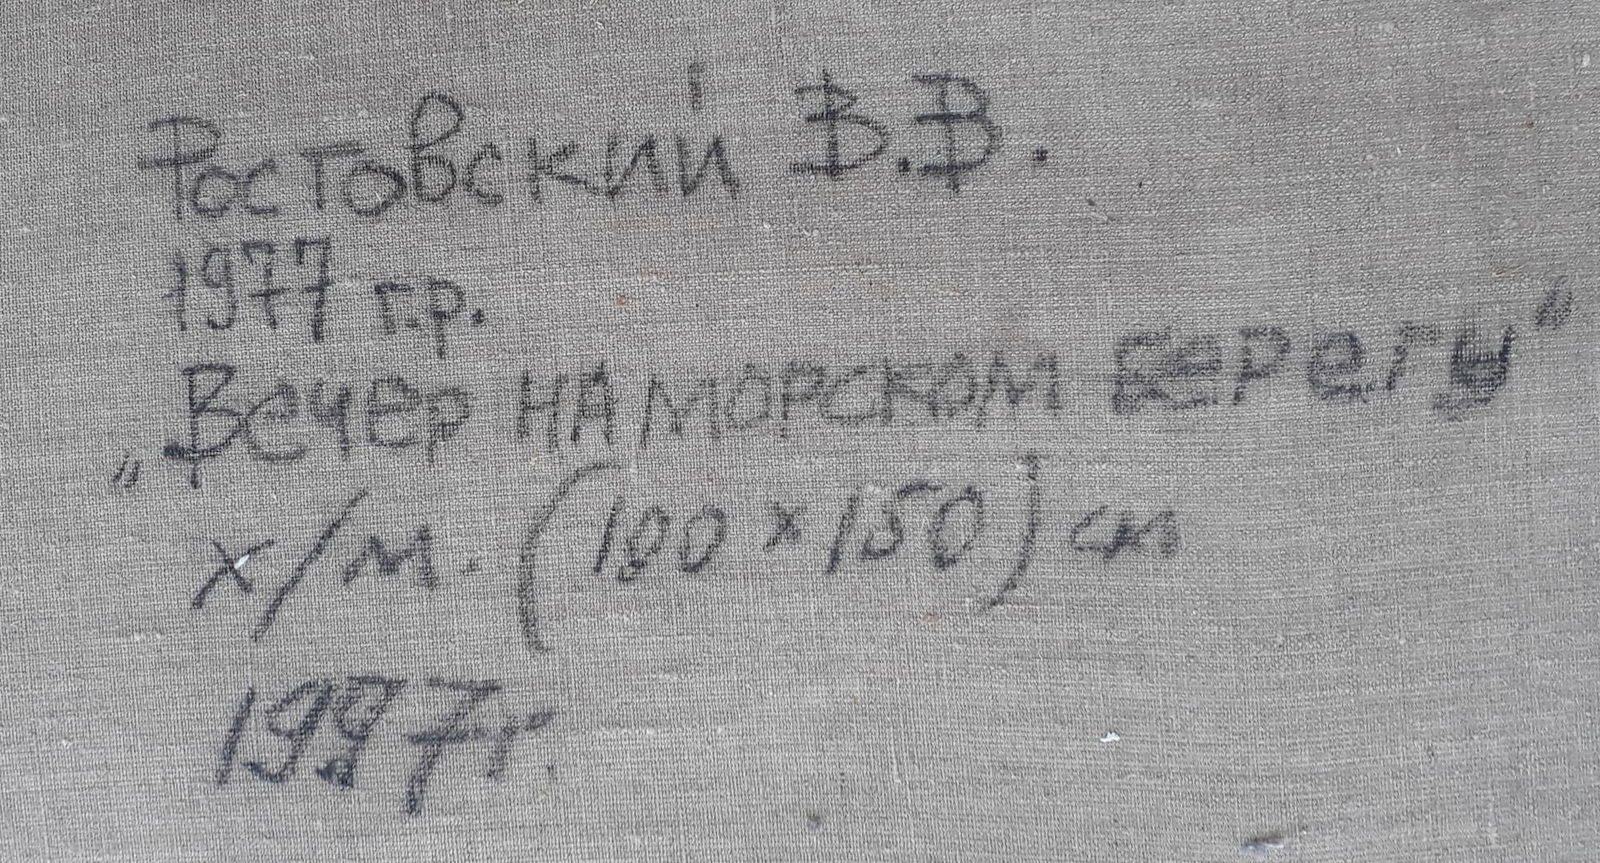 Ростовский В.В.
1977 г.р.
„Вечер на морском берегу“
х/м. (100 х 150) см
1997г.